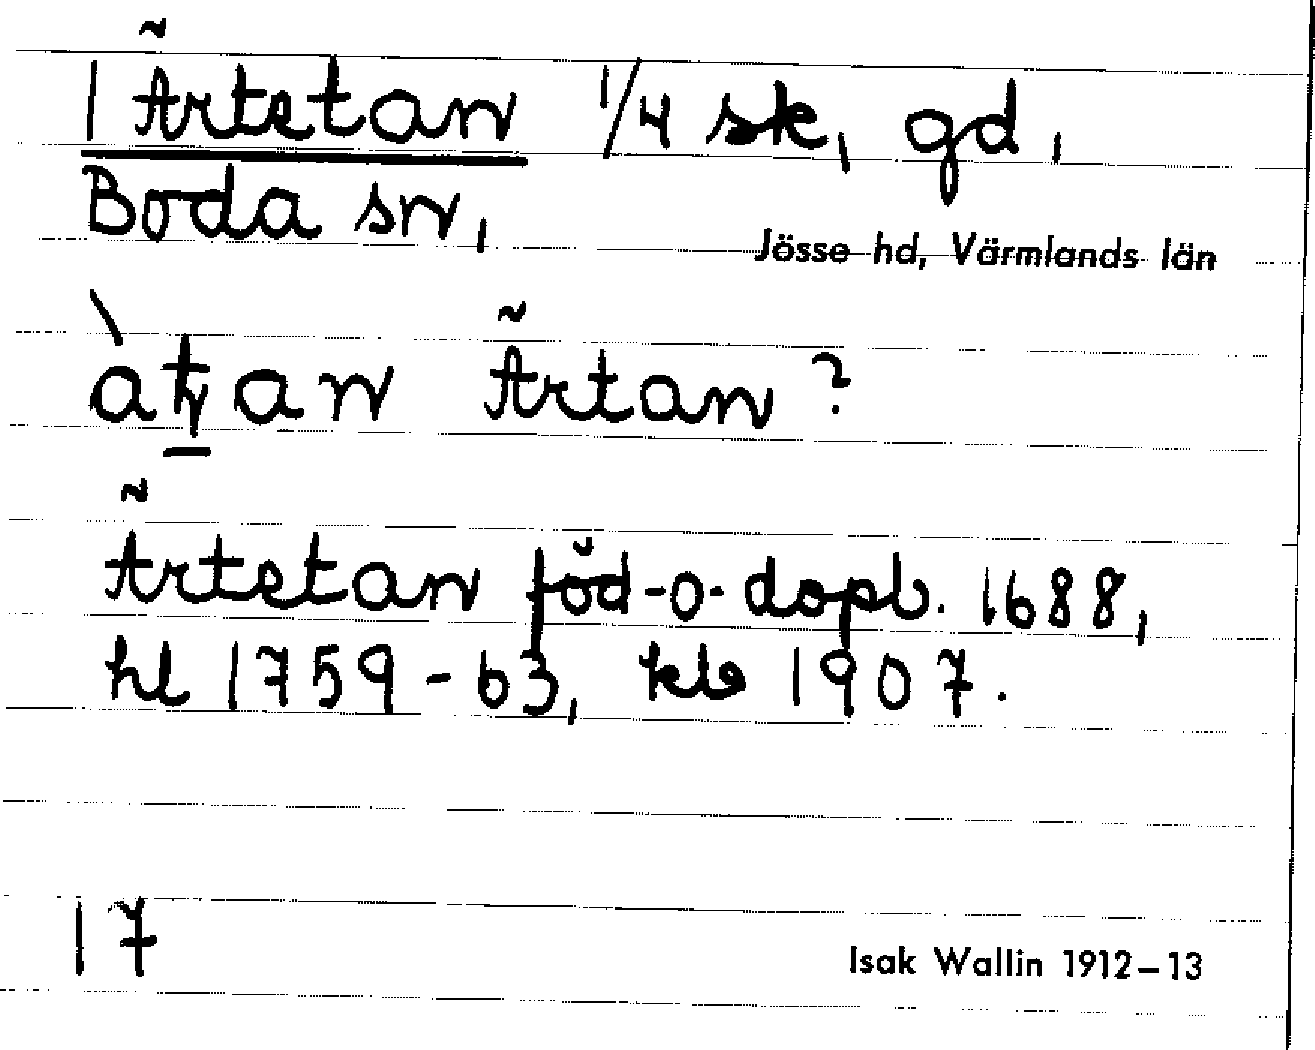 1 Ärtetan 1/4 sk, gd,
Boda sn,
Jösse hd, Värmlands län
àt̠an Ärtan?
Ärtetan föd-o-dopb. 1688,
hl 1759-63, kb 1907.
17
Isak Wallin 1912–13